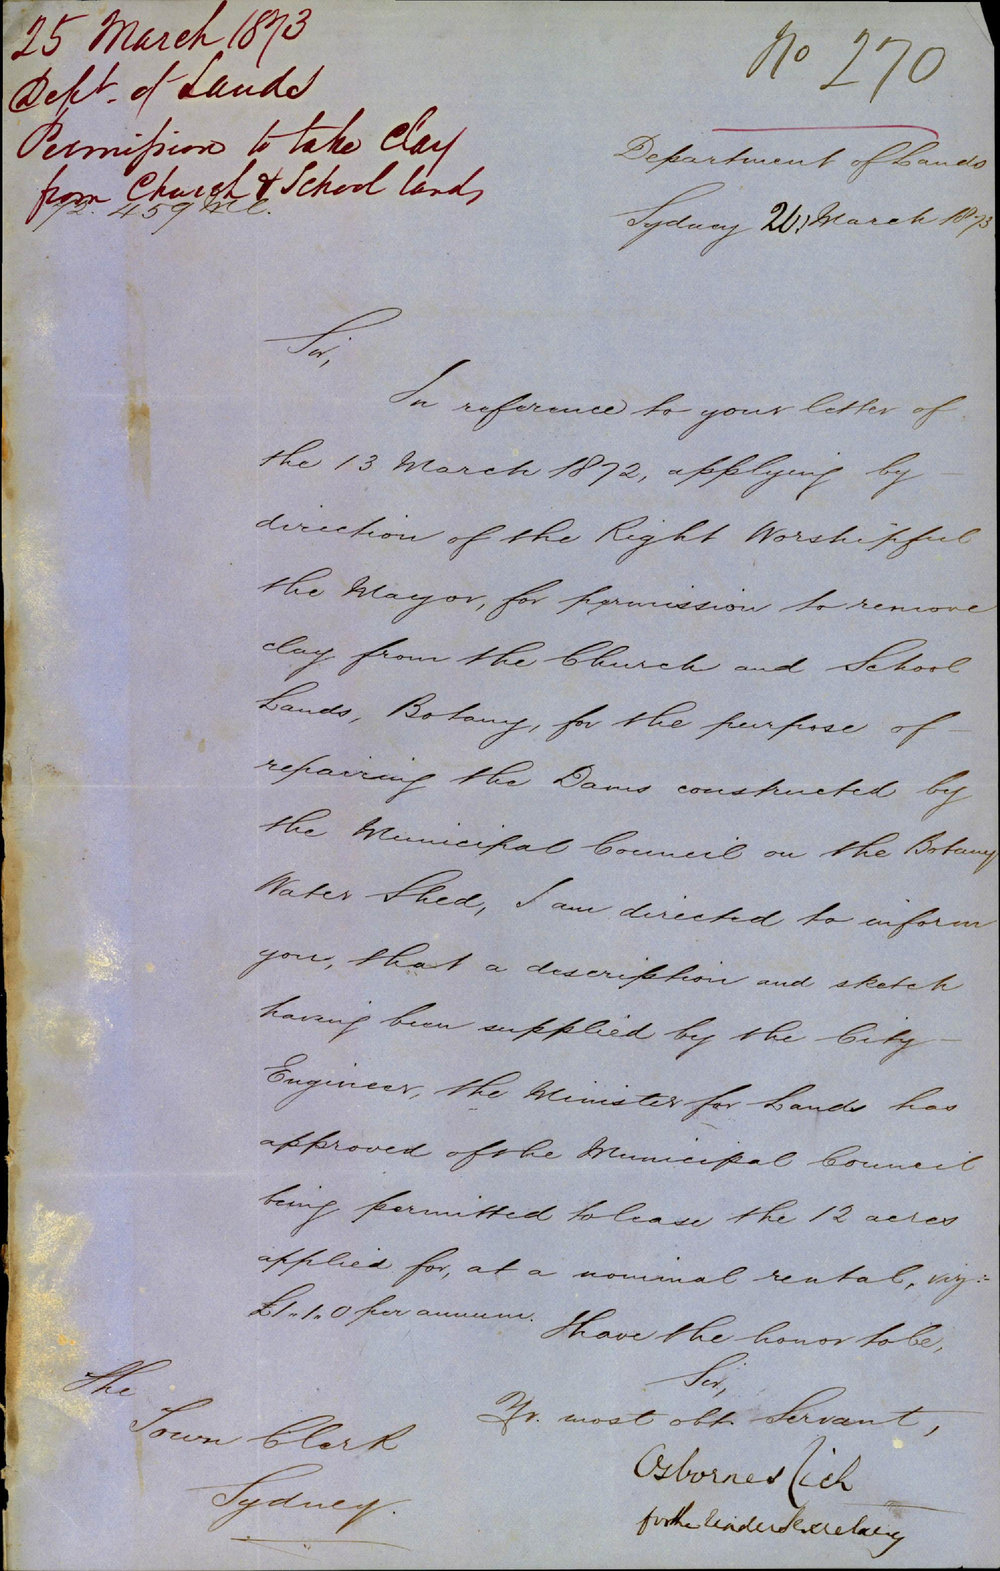 25 March 1873
Dept. of Lands
Permission to take clay
from Church & School lands
72. 459 Ml.
No 270
Department of Lands
Sydney March 1873
Sir,
In reference to your letter of
the 13 March 1872, applying by
direction of the Right Worshipful
the Mayor, for permission to remove
clay from the Church and School
Lands, Botany, for the purpose of
repairing the Dams constructed by
the Municipal Council on the Botany
Water Shed, I am directed to inform
you, that a description and sketch
having been supplied by the City
Engineer, the Minister for Lands has
approved of the Municipal Council
being permitted to lease the 12 acres
applied for, at a nominal rental, viz:-
£1.1.0 per annum.
I have the honor to be,
Sir,
Yr. most obt. Servant,
Osborne Rich
for the Under Secretary
The
Town Clerk
Sydney.